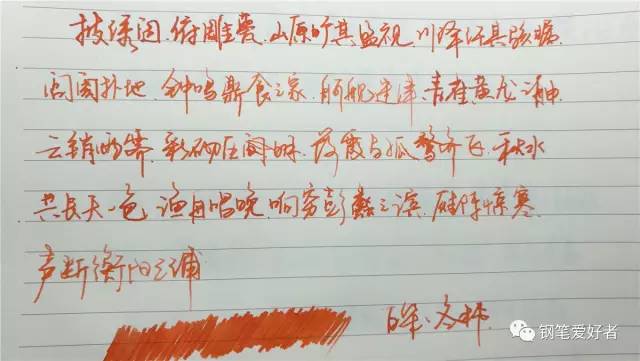 披绣闼,俯雕甍,山原旷其盈视,川泽纡其骇瞩.
闾阎扑地,钟鸣鼎食之家,舸舰迷津,青雀黄龙之舳.
云销雨霁,彩彻区明,落霞与孤鹜齐飞,秋水
共长天一色,渔舟唱晚,响穷彭蠡之滨,雁阵惊寒,
声断衡阳之浦
钢笔爱好者